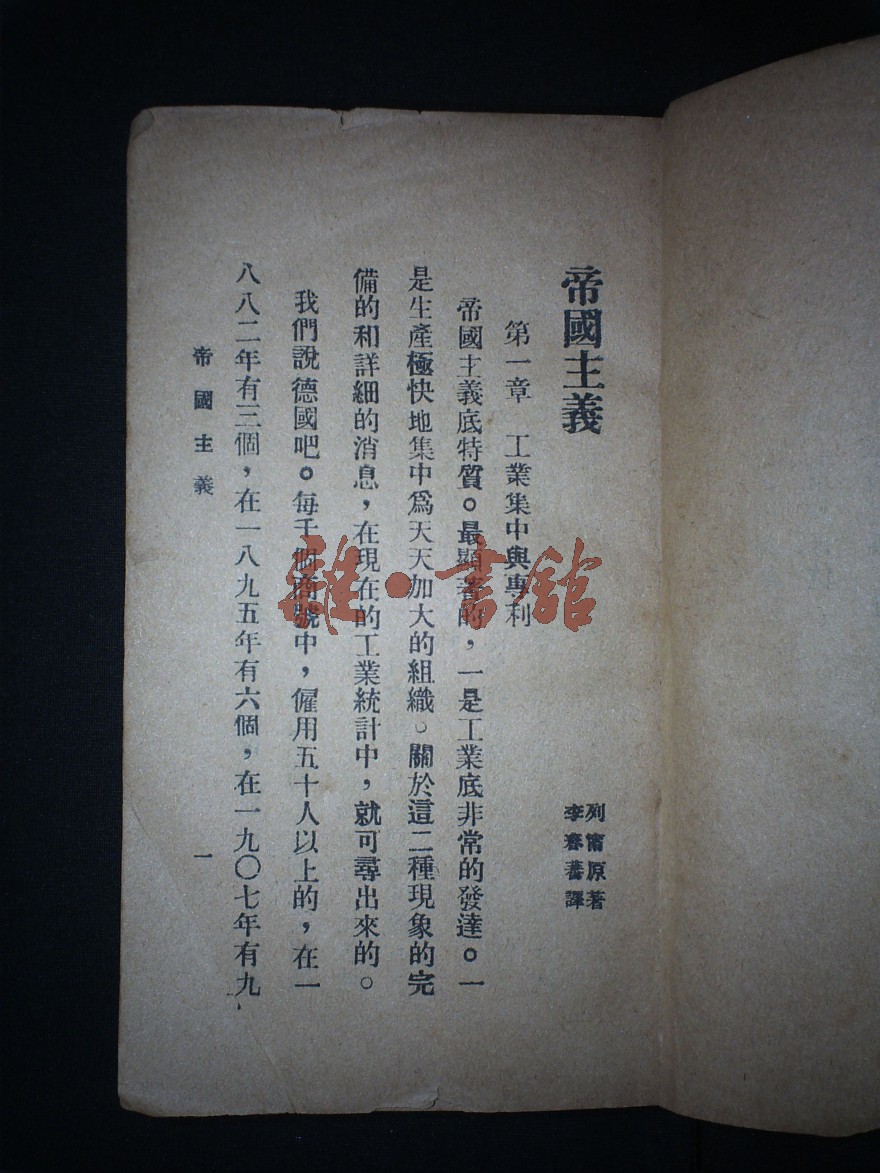 帝國主義
列甯原著
李春蕃譯
第一章　工業集中與專利
帝國主義底特質。最顯著的，一是工業底非常的發達。一
是生產極快地集中爲天天加大的組織。關於這二種現象的完
備的和詳細的消息，在現在的工業統計中，就可尋出來的。
我們說德國吧。每千個商號中，僱用五十人以上的，在一
八八二年有三個，在一八九五年有六個，在一九〇七年有九
帝國主義
一
雜·書館